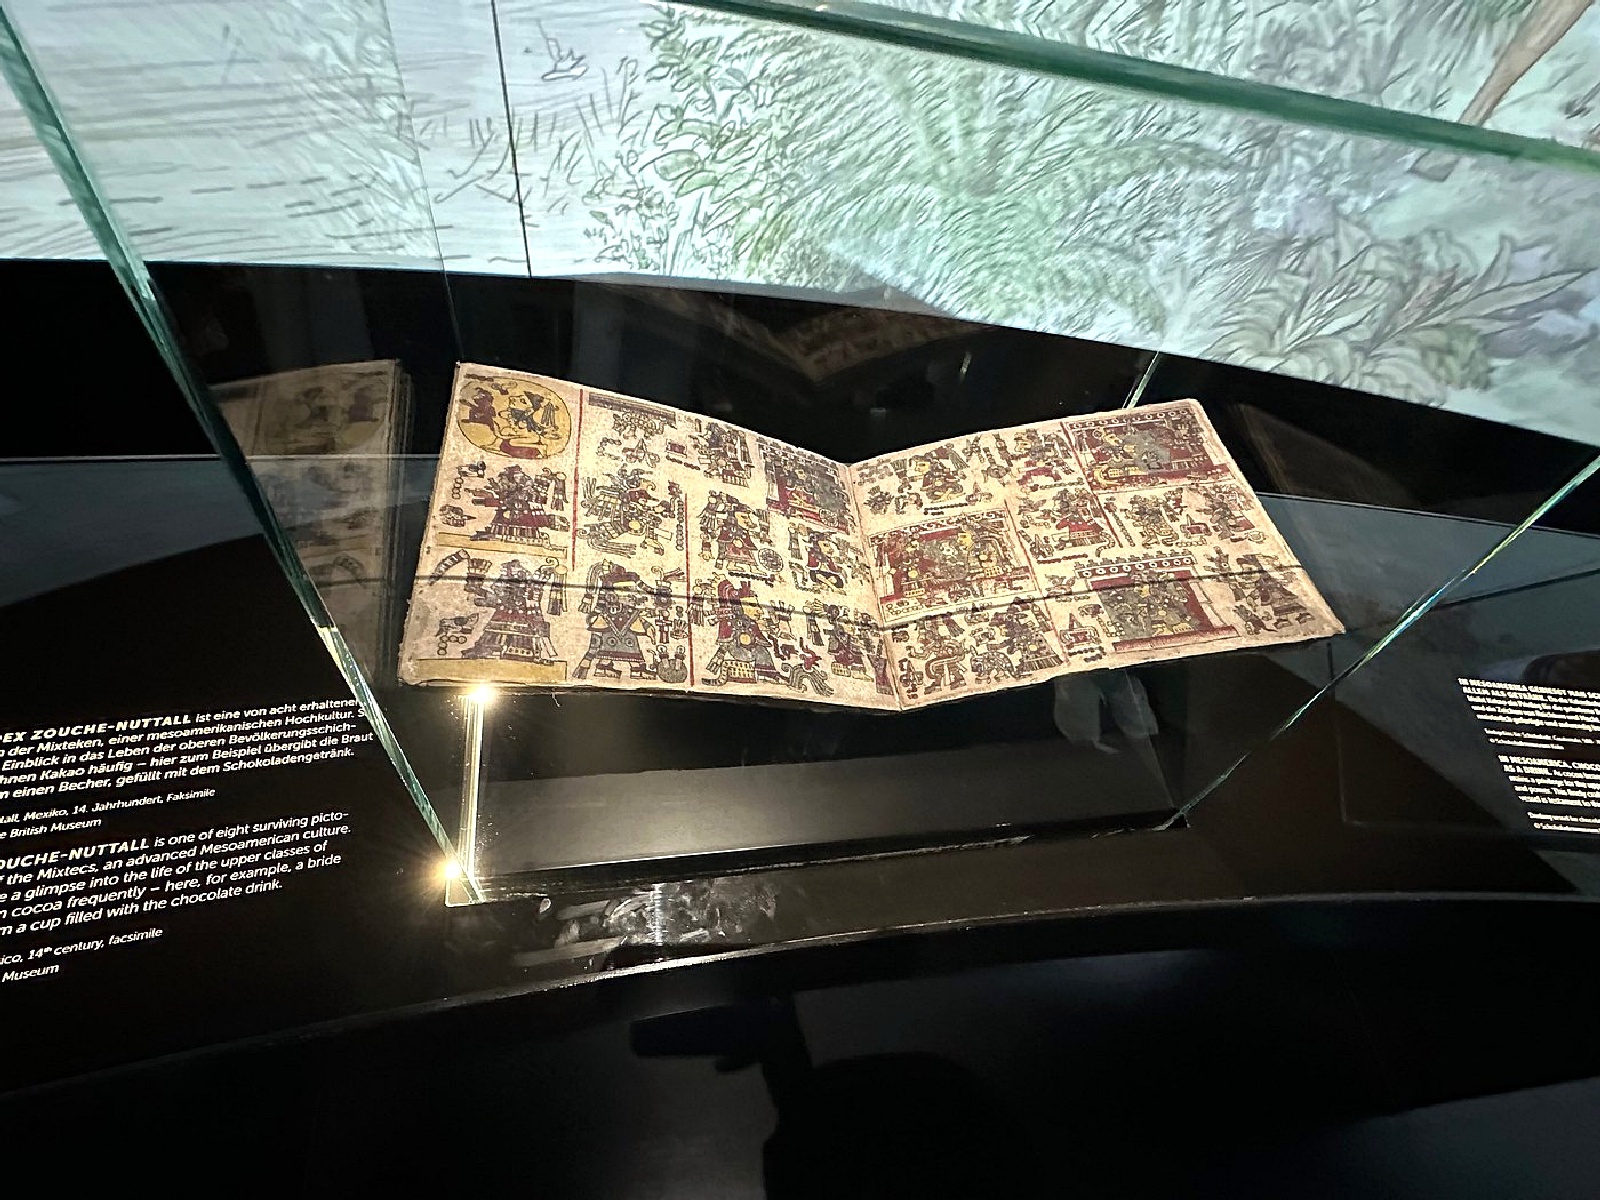 EX ZOUCHE-NUTTALL ist eine von acht erhaltenen
der Mixteken, einer mesoamerikanischen Hochkultur. S
Einblick in das Leben der oberen Bevölkerungsschich-
hnen Kakao häufig – hier zum Beispiel übergibt die Braut
m einen Becher, gefüllt mit dem Schokoladengetränk.
tall, Mexiko, 14. Jahrhundert, Faksimile
e British Museum
OUCHE-NUTTALL is one of eight surviving picto-
f the Mixtecs, an advanced Mesoamerican culture.
e a glimpse into the life of the upper classes of
n cocoa frequently – here, for example, a bride
m a cup filled with the chocolate drink.
ico, 14th century, facsimile
Museum
IN MESOAMERIKA GENIESST MAN SCH
ALLEM ALS GETRÄNK.
IN MESOAMERICA, CHOCO
AS A DRINK.